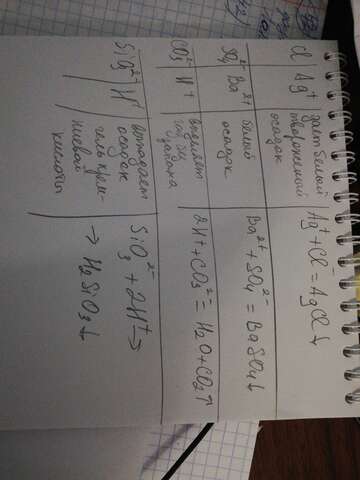 Cl⁻ | Ag⁺ | дает белый
творожистый
осадок | Ag⁺ + Cl⁻ = AgCl↓
SO₄²⁻ | Ba²⁺ | белый
осадок | Ba²⁺ + SO₄²⁻ = BaSO₄↓
CO₃²⁻ | H⁺ | выделяет
газ, без
запаха | 2H⁺ + CO₃²⁻ = H₂O + CO₂↑
SiO₃²⁻ | H⁺ | выпадает
осадок
гель крем-
ниевой
кислоты | SiO₃²⁻ + 2H⁺ →
→ H₂SiO₃↓